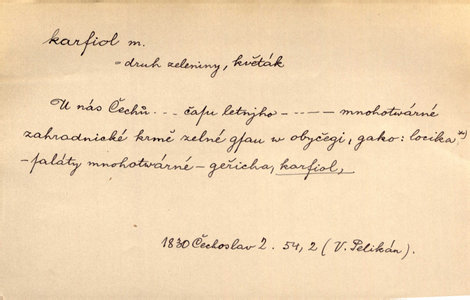 karfiol m.
= druh zeleniny, květák
U nás Čechů - - - čaſu letnjho - - - - - mnohotwárné
zahradnické krmě zelné gſau w obyčegi, gako: locika,*)
- ſaláty mnohotwárné - geřicha, karfiol,
1830 Čechoslav 2. 54, 2 (V. Pelikán).